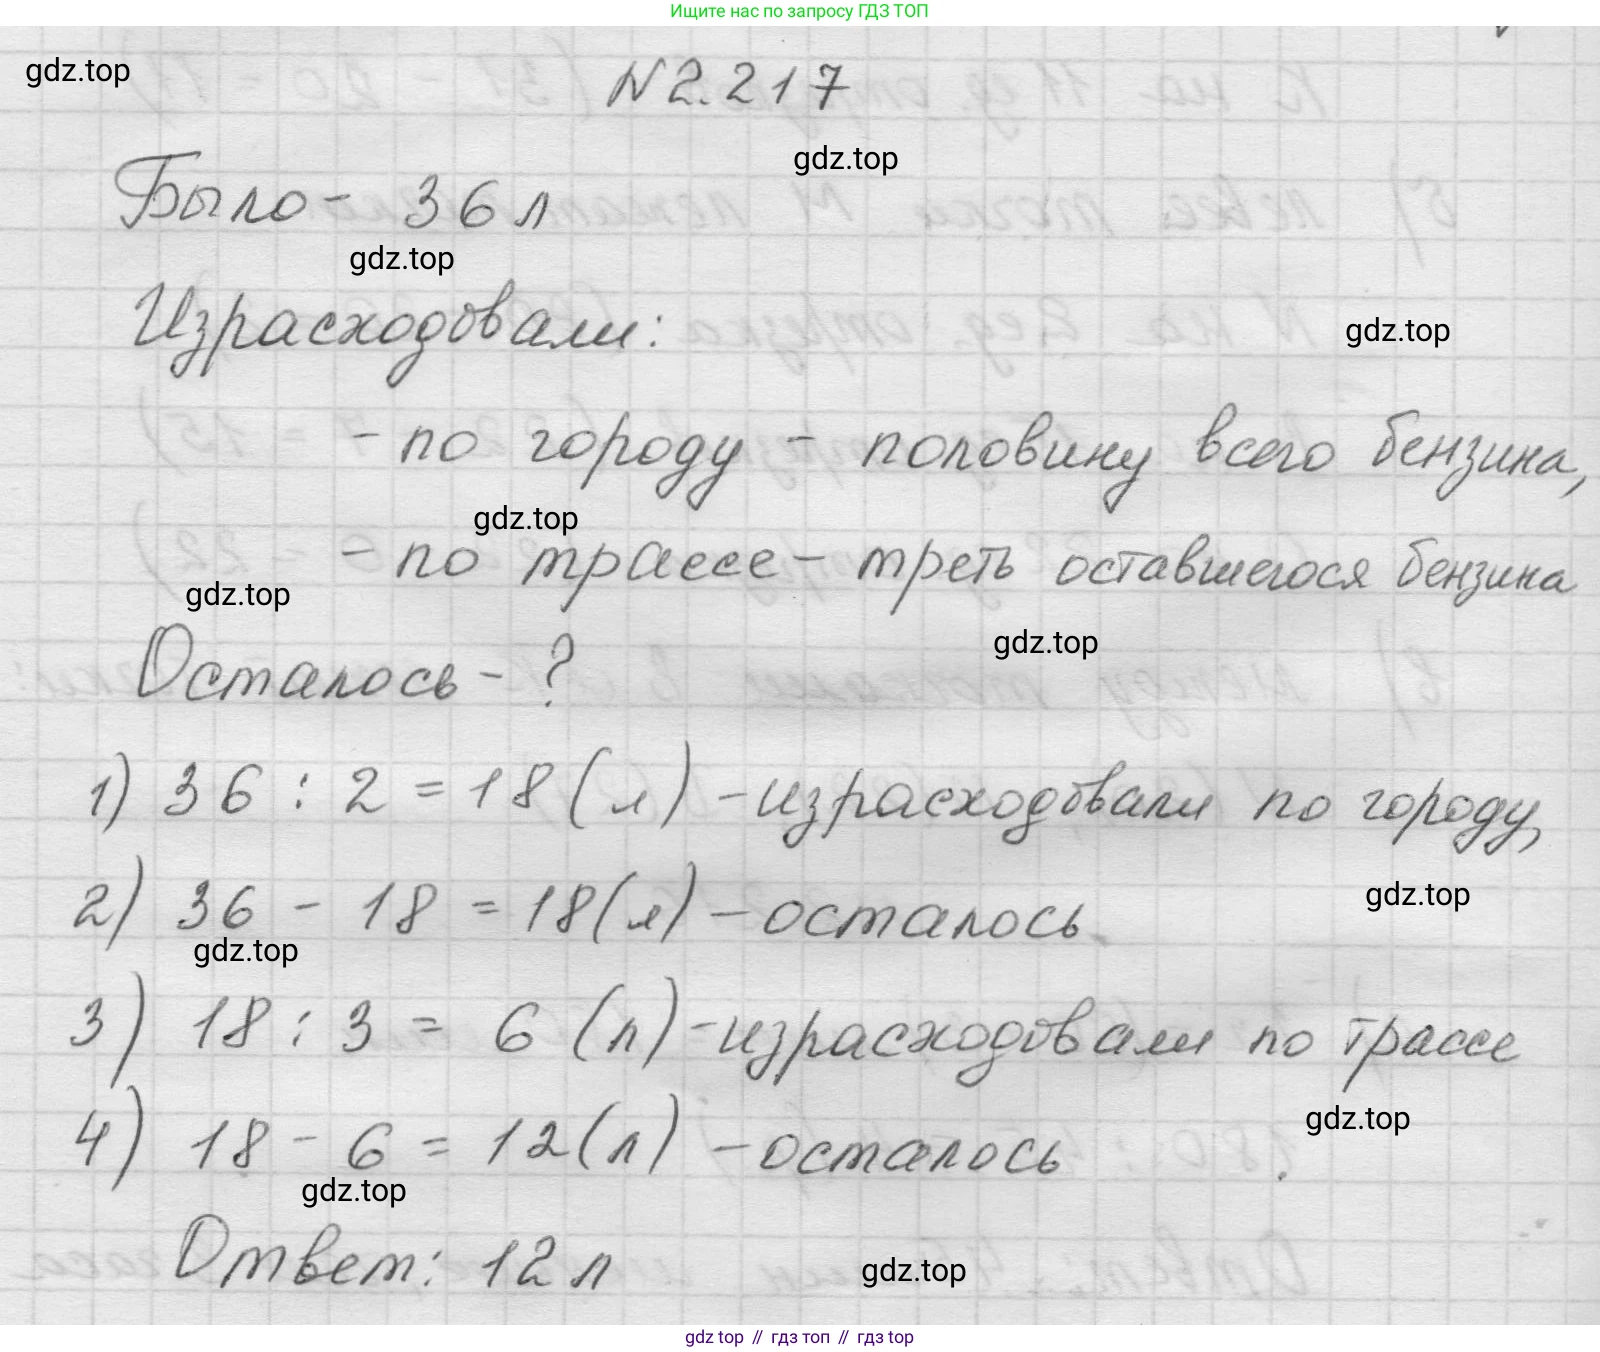 Ищите нас по запросу ГДЗ ТОП
gdz.top
N2.217
gdz.top
Было - 36 л
gdz.top
Израсходовали:
gdz.top
- по городу - половину всего бензина,
gdz.top
- по трассе - треть оставшегося бензина
gdz.top
gdz.top
Осталось - ?
1) 36 : 2 = 18 (л) - израсходовали по городу,
gdz.top
2) 36 - 18 = 18 (л) - осталось.
gdz.top
3) 18 : 3 = 6 (л) - израсходовали по трассе
gdz.top
4) 18 - 6 = 12 (л) - осталось.
gdz.top
Ответ: 12 л
gdz.top
gdz top // гдз топ // gdz top